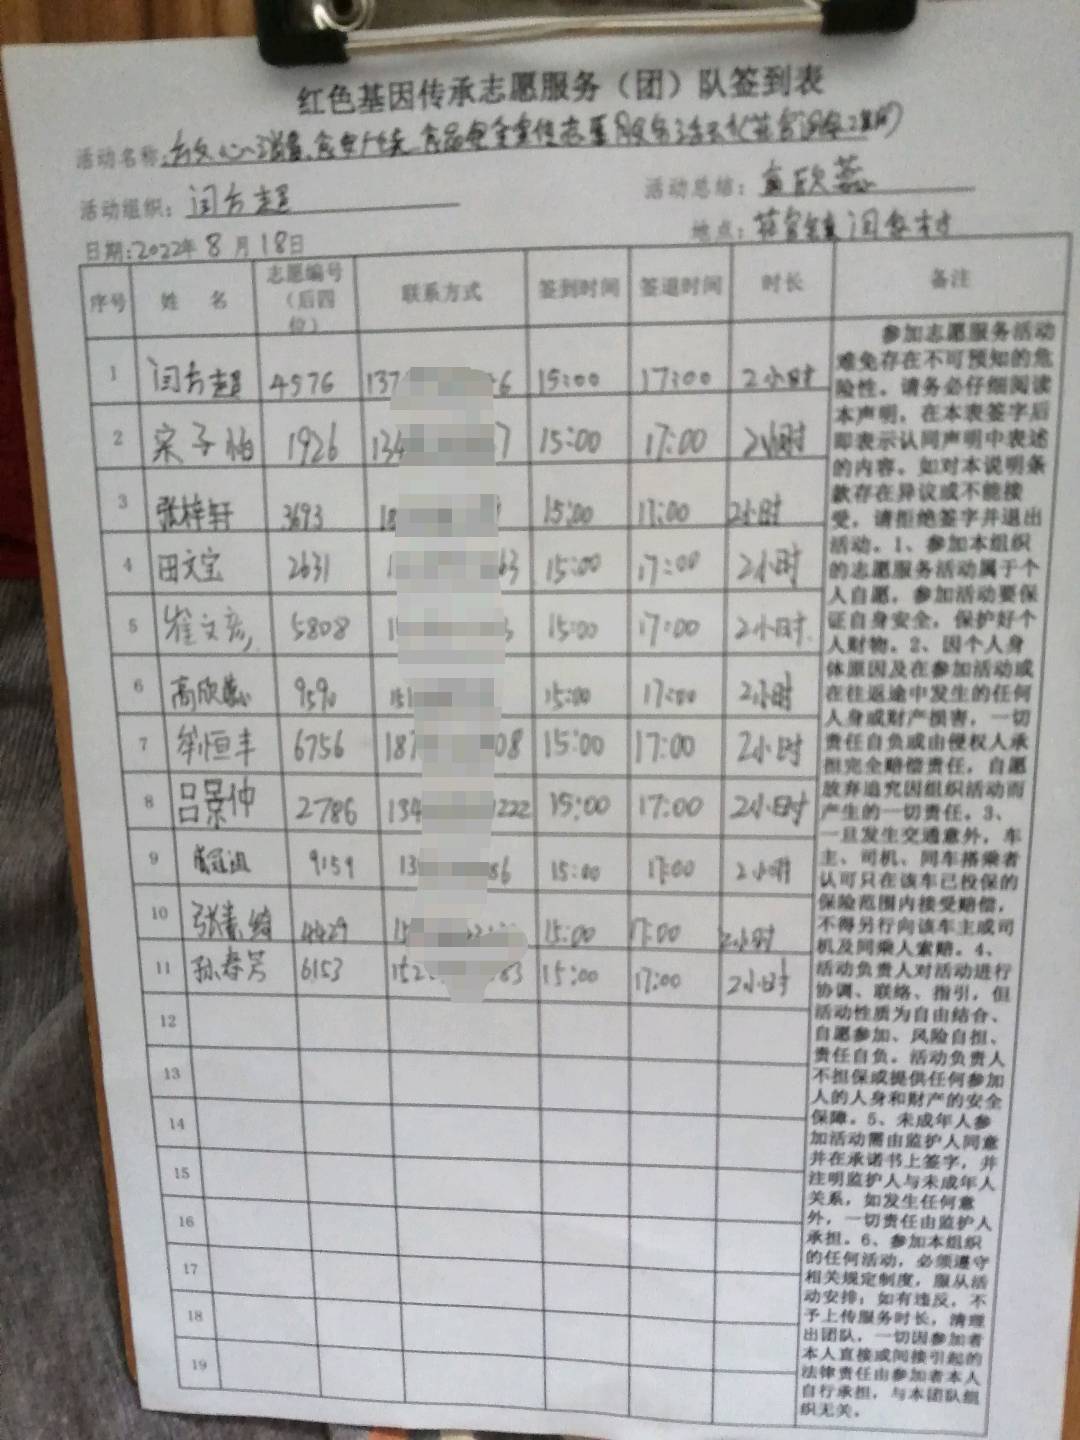 红色基因传承志愿服务（团）队签到表
活动名称：
活动组织：闫方超 活动总结：高欣蕊
日期：2022年8月18日 地点：
序号 姓 名 志愿编号（后四位） 联系方式 签到时间 签退时间 时长 备注
1 闫方超 4576 137 6 15:00 17:00 2小时
2 宋子怡 1926 134 7 15:00 17:00 2小时
3 张梓轩 3693 18 15:00 17:00 2小时
4 田文宝 2631 1 63 15:00 17:00 2小时
5 崔文彦 5808 1 3 15:00 17:00 2小时
6 高欣蕊 9590 151 15:00 17:00 2小时
7 牟恒丰 6756 187 08 15:00 17:00 2小时
8 吕景仲 2786 134 222 15:00 17:00 2小时
9 9159 13 86 15:00 17:00 2小时
10 张素绮 4429 15 15:00 17:00 2小时
11 孙春芳 6153 152 83 15:00 17:00 2小时
12
13
14
15
16
17
18
19
参加志愿服务活动
难免存在不可预知的危
险性。请务必仔细阅读
本声明，在本表签字后
即表示认同声明中表述
的内容。如对本说明条
款存在异议或不能接
受，请拒绝签字并退出
活动。1、参加本组织
的志愿服务活动属于个
人自愿，参加活动要保
证自身安全，保护好个
人财物。2、因个人身
体原因及在参加活动或
在往返途中发生的任何
人身或财产损害，一切
责任自负或由侵权人承
担完全赔偿责任，自愿
放弃追究因组织活动而
产生的一切责任。3、
一旦发生交通意外，车
主、司机、同车搭乘者
认可只在该车已投保的
保险范围内接受赔偿，
不得另行向该车主或司
机及同乘人索赔。4、
活动负责人对活动进行
协调、联络、指引，但
活动性质为自由结合、
自愿参加、风险自担、
责任自负。活动负责人
不担保或提供任何参加
人的人身和财产的安全
保障。5、未成年人参
加活动需由监护人同意
并在承诺书上签字，并
注明监护人与未成年人
关系，如发生任何意
外，一切责任由监护人
承担。6、参加本组织
的任何活动，必须遵守
相关规定制度，服从活
动安排；如有违反，不
予上传服务时长，清理
出团队，一切因参加者
本人直接或间接引起的
法律责任由参加者本人
自行承担，与本团队组
织无关。